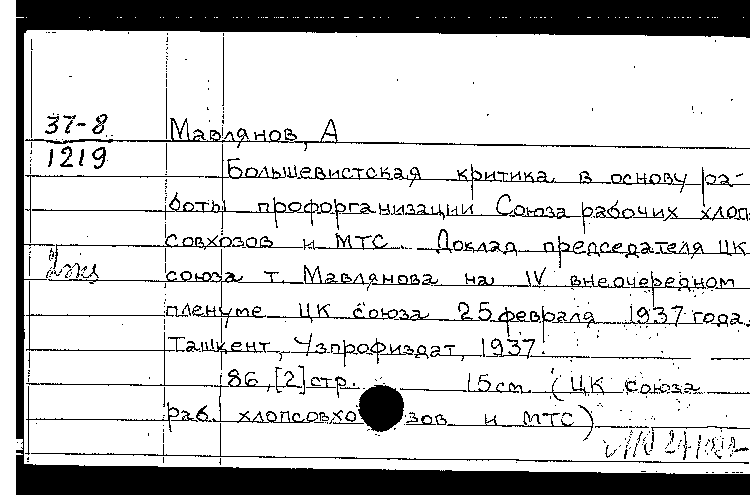 37-8
1219
Мавлянов, А
Большевистская критика в основу ра-
боты профорганизации Союза рабочих хлоп
совхозов и МТС. Доклад председателя ЦК
союза т. Мавлянова на IV внеочередном
пленуме ЦК союза 25 февраля 1937 года.
Ташкент, Узпрофиздат, 1937.
86,[2]стр. 15см. (ЦК союза
раб. хлопсовхозов и МТС)